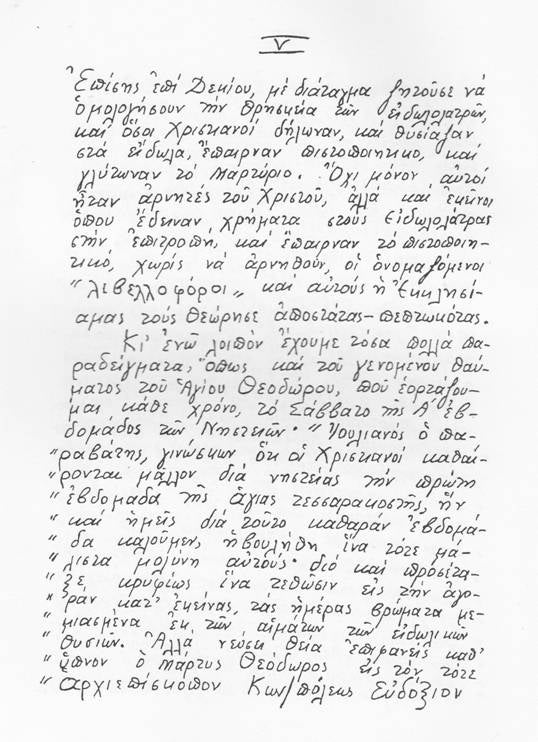 V
Ἐπίσης ἐπί Δεκίου, μέ διάταγμα ζητοῦσε νά
ὁμολογήσουν τήν θρησκεία τῶν εἰδωλολατρῶν,
καί ὅσοι Χριστιανοί δήλωναν, καί θυσίαζαν
στά εἴδωλα, ἔπαιρναν πιστοποιητικό, καί
γλύτωναν τό Μαρτύριο. Ὄχι μόνον αὐτοί
ἦταν ἀρνητές τοῦ Χριστοῦ, ἀλλά καί ἐκεῖνοι
ὅπου ἔδειναν χρήματα στούς εἰδωλολάτρας
στήν ἐπιτροπή, καί ἔπαιρναν τό πιστοποιη-
τικό, χωρίς νά ἀρνηθοῦν, οἱ ὀνομαζόμενοι
"λιβελλοφόροι" καί αὐτούς ἡ Ἐκκλησί-
α μας τούς θεώρησε ἀποστάτας-πεπτωκότας.
Κι' ἐνῶ λοιπόν ἔχουμε τόσα πολλά πα-
ραδείγματα, ὅπως καί τοῦ γενομένου θαύ-
ματος τοῦ Ἁγίου Θεοδώρου, πού ἑορτάζου-
με κάθε χρόνο, τό Σάββατο τῆς Α' ἑβ-
δομάδος τῶν Νηστειῶν· "Ἰουλιανός ὁ πα-
"ραβάτης, γινώσκων ὅτι οἱ Χριστιανοί καθαί-
"ρονται μᾶλλον διά νηστείας τήν πρώτη
"ἑβδομάδα τῆς ἁγίας τεσσαρακοστῆς, ἥν
"καί ἡμεῖς διά τοῦτο καθαράν ἑβδομά-
"δα καλοῦμεν, ἠβουλήθη ἵνα τότε μά-
"λιστα μολύνη αὐτούς· διό καί προσέτα-
"ξε κρυφίως ἵνα τεθῶσιν εἰς τήν ἀγο-
"ράν κατ' ἐκείνας τάς ἡμέρας βρώματα με-
"μιασμένα ἐκ τῶν αἱμάτων τῶν εἰδωλικῶν
"θυσιῶν. Ἀλλά νεύσει θεία ἐπιφανείς καθ'
"ὕπνον ὁ Μάρτυς Θεόδωρος εἰς τόν τότε
"ἀρχιεπίσκοπον Κων/πόλεως Εὐδόξιον